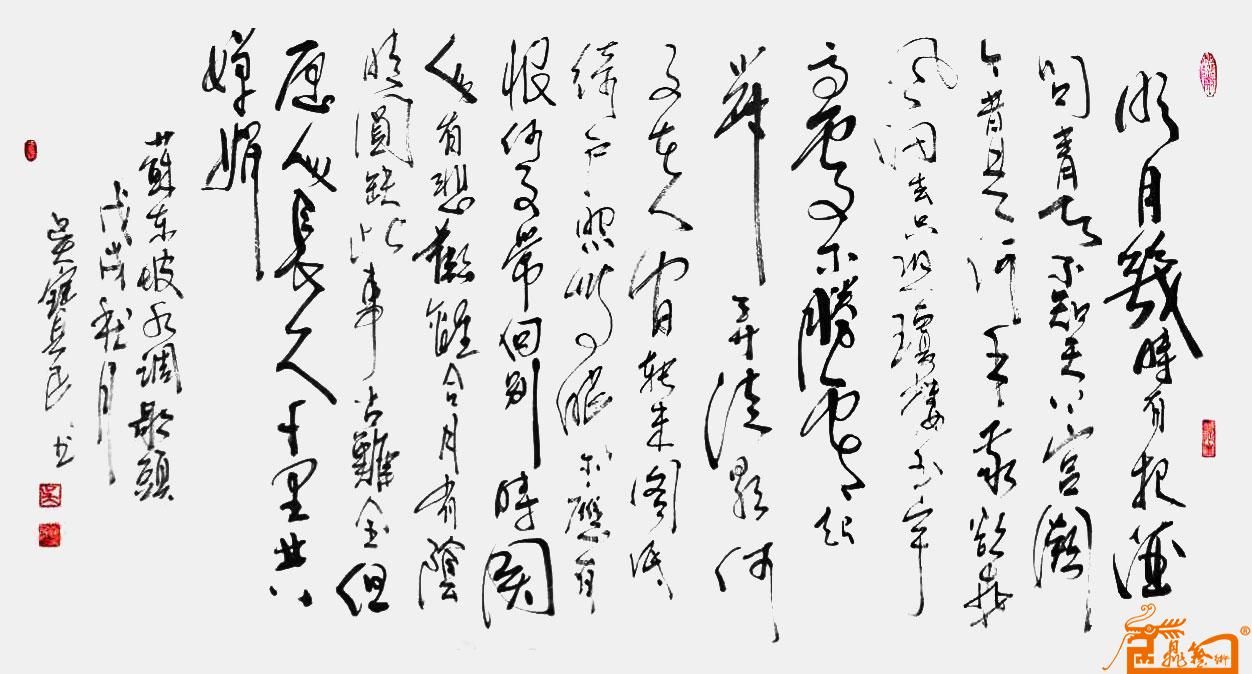 明月幾時有把酒
問青天不知天上宮闕
今昔是何年我欲乘
風归去只恐瓊樓玉宇
高處不勝寒起
舞弄清影何
在人間轉朱閣低
綺户照無眠不應有
恨何事常向别時圓
人有悲歡離合月有陰
晴圓缺此事古難全但
愿人長久千里共
嬋娟
蘇东坡水调歌頭
戊戌秋月
吴寶良书